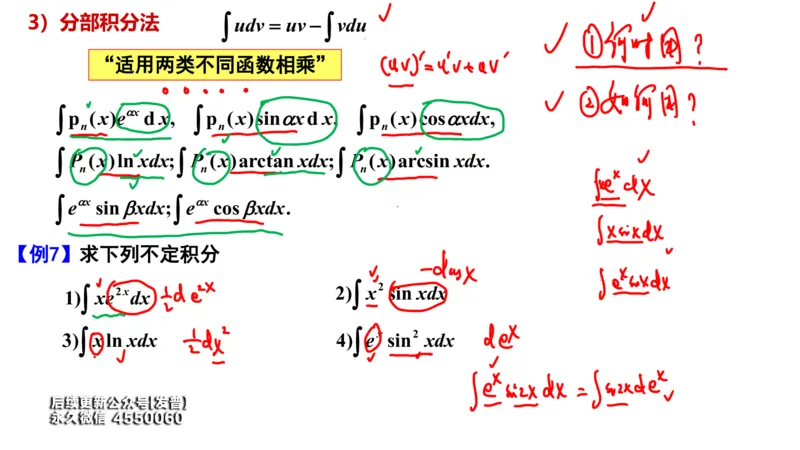 3）分部积分法 ∫udv = uv − ∫vdu.
“适用两类不同函数相乘”
(uv)' = u'v + uv'
①何时用?
②如何用?
∫pₙ(x)e^{αx} dx, ∫pₙ(x)sinαxdx. ∫pₙ(x)cosαxdx,
∫Pₙ(x)ln xdx; ∫Pₙ(x)arctan xdx; ∫Pₙ(x)arcsin xdx.
∫e^{αx} sin βxdx; ∫e^{αx} cos βxdx.
∫xe^x dx
∫x sin x dx
∫e^x sin x dx
【例7】求下列不定积分
1)∫xe^{2x}dx ½ d e^{2x} 2)∫x² sin xdx −d cos x
3)∫x ln xdx ½ dx² 4)∫e^x sin² xdx de^x
∫e^x sin2x dx = ∫sin2x de^x
后续更新公众号[发普]
永久微信 4550060